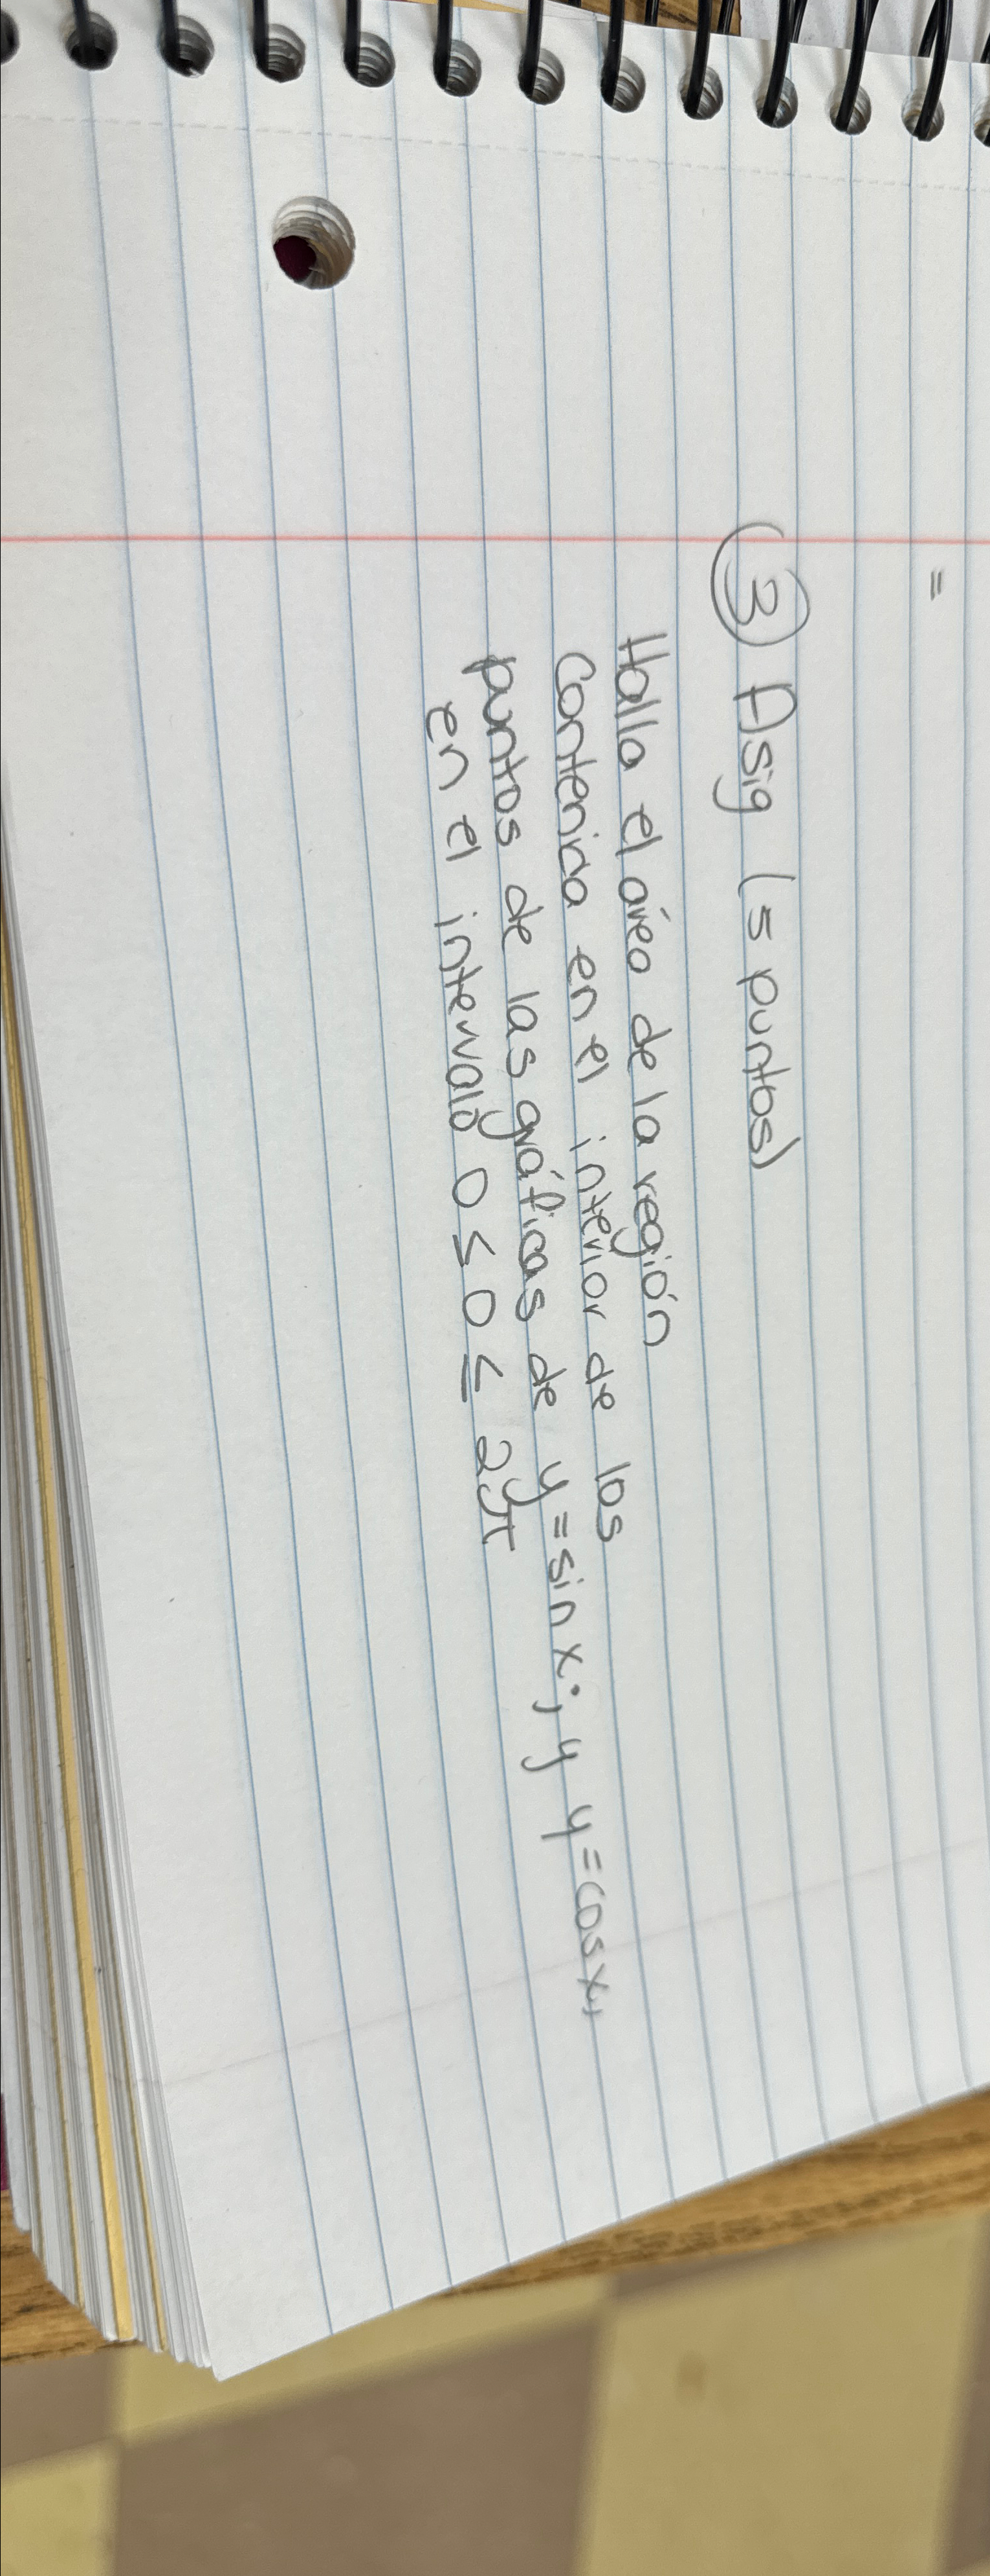 =
③ Asig (5 puntos)
Halla el área de la región
contenida en el interior de los
puntos de las gráficas de y = sin x; y y = cos x,
en el intervalo 0 ≤ 0 ≤ 2π